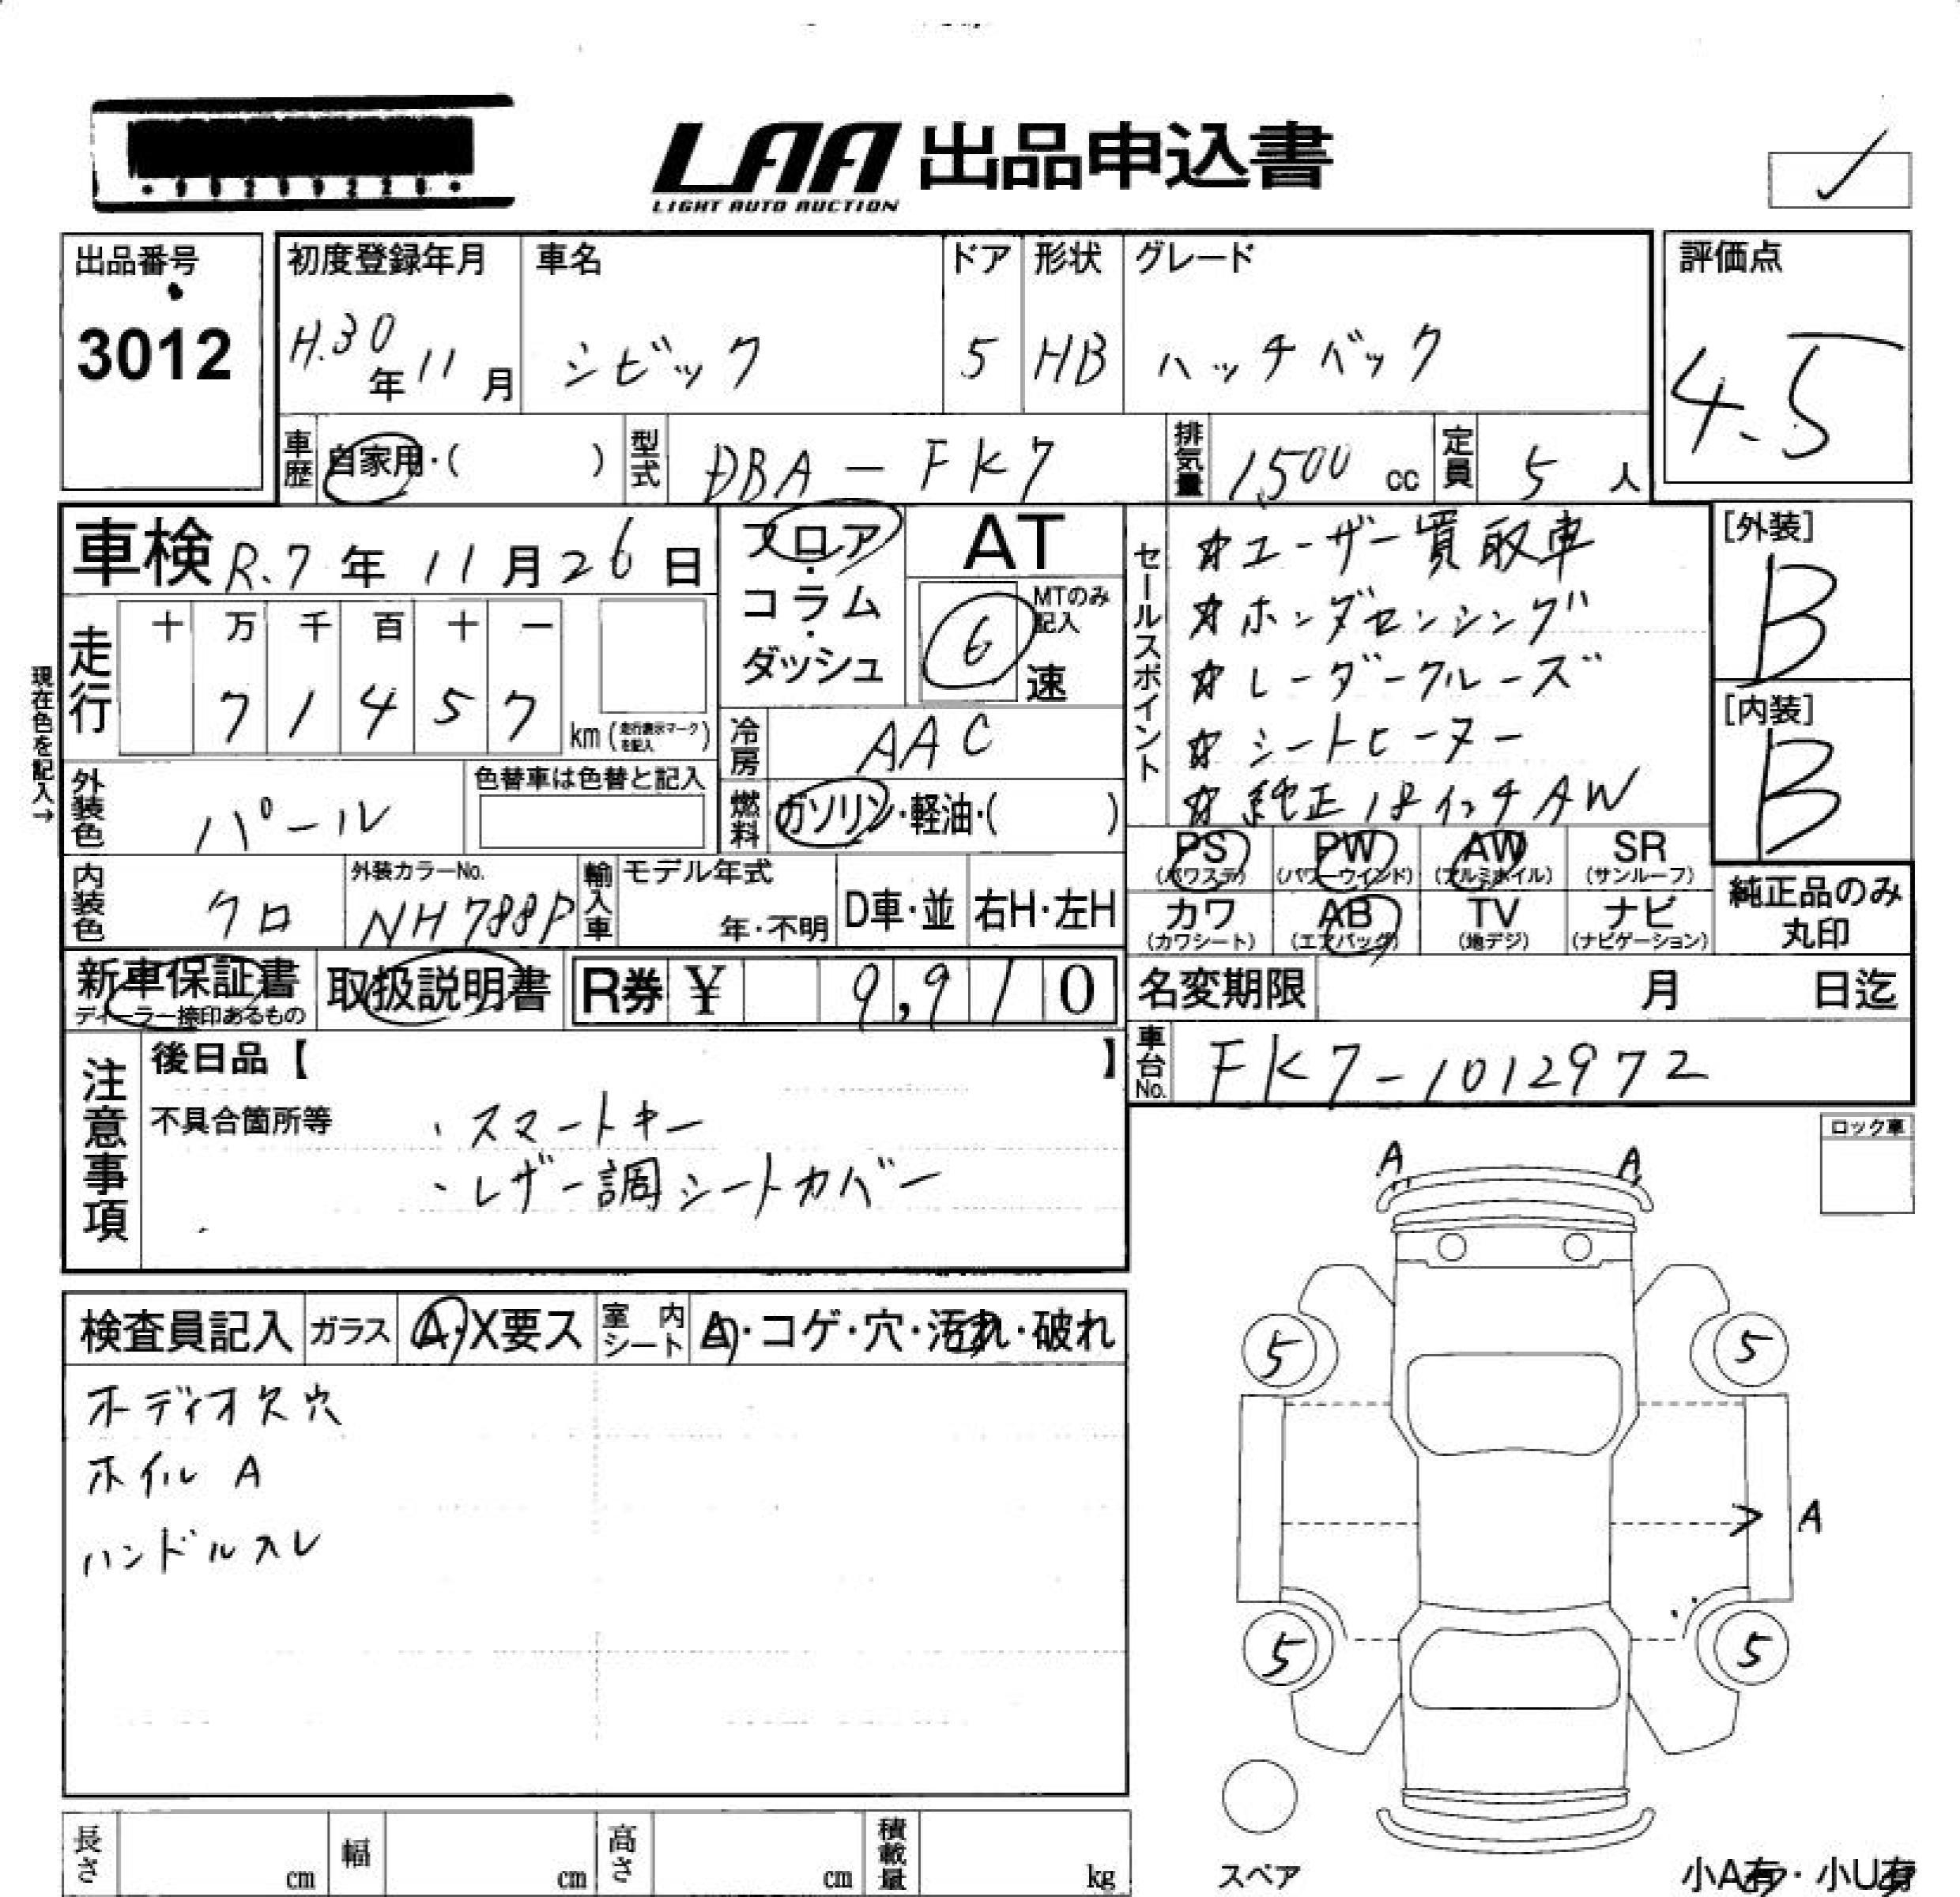 LAA 出品申込書
LIGHT AUTO AUCTION
出品番号
3012
初度登録年月
H.30年11月
車名
シビック
ドア
5
形状
HB
グレード
ハッチバック
評価点
4.5
車歴 自家用・( )
型式 DBA-FK7
排気量 1,500 cc
定員 5 人
車検 R.7年11月26日
フロア・コラム・ダッシュ
AT
6
MTのみ記入
速
セールスポイント
☆ユーザー買取車
☆ホンダセンシング
☆レーダークルーズ
☆シートヒーター
☆純正18インチAW
[外装]
B
[内装]
B
現在色を記入→
走行
十 万 千 百 十 一
7 1 4 5 7
km (走行表示マークを記入)
冷房 AAC
外装色 パール
色替車は色替と記入
燃料 ガソリン・軽油・( )
PS (パワステ) PW (パワーウインド) AW (アルミホイル) SR (サンルーフ)
カワ (カワシート) AB (エアバッグ) TV (地デジ) ナビ (ナビゲーション)
純正品のみ丸印
内装色 クロ
外装カラーNo.
NH788P
輸入車
モデル年式
年・不明
D車・並
右H・左H
新車保証書
ディーラー捺印あるもの
取扱説明書
R券 ¥ 9,910
名変期限 月 日迄
車台No. FK7-1012972
注意事項
後日品【 】
不具合箇所等
・スマートキー
・レザー調シートカバー
ロック車
A A
検査員記入
ガラス A・X要ス
室内シート A・コゲ・穴・汚れ・破れ
ホイルA
ハンドルスレ
5 5
A
5 5
スペア
小A有・小U有
長さ cm
幅 cm
高さ cm
積載量 kg